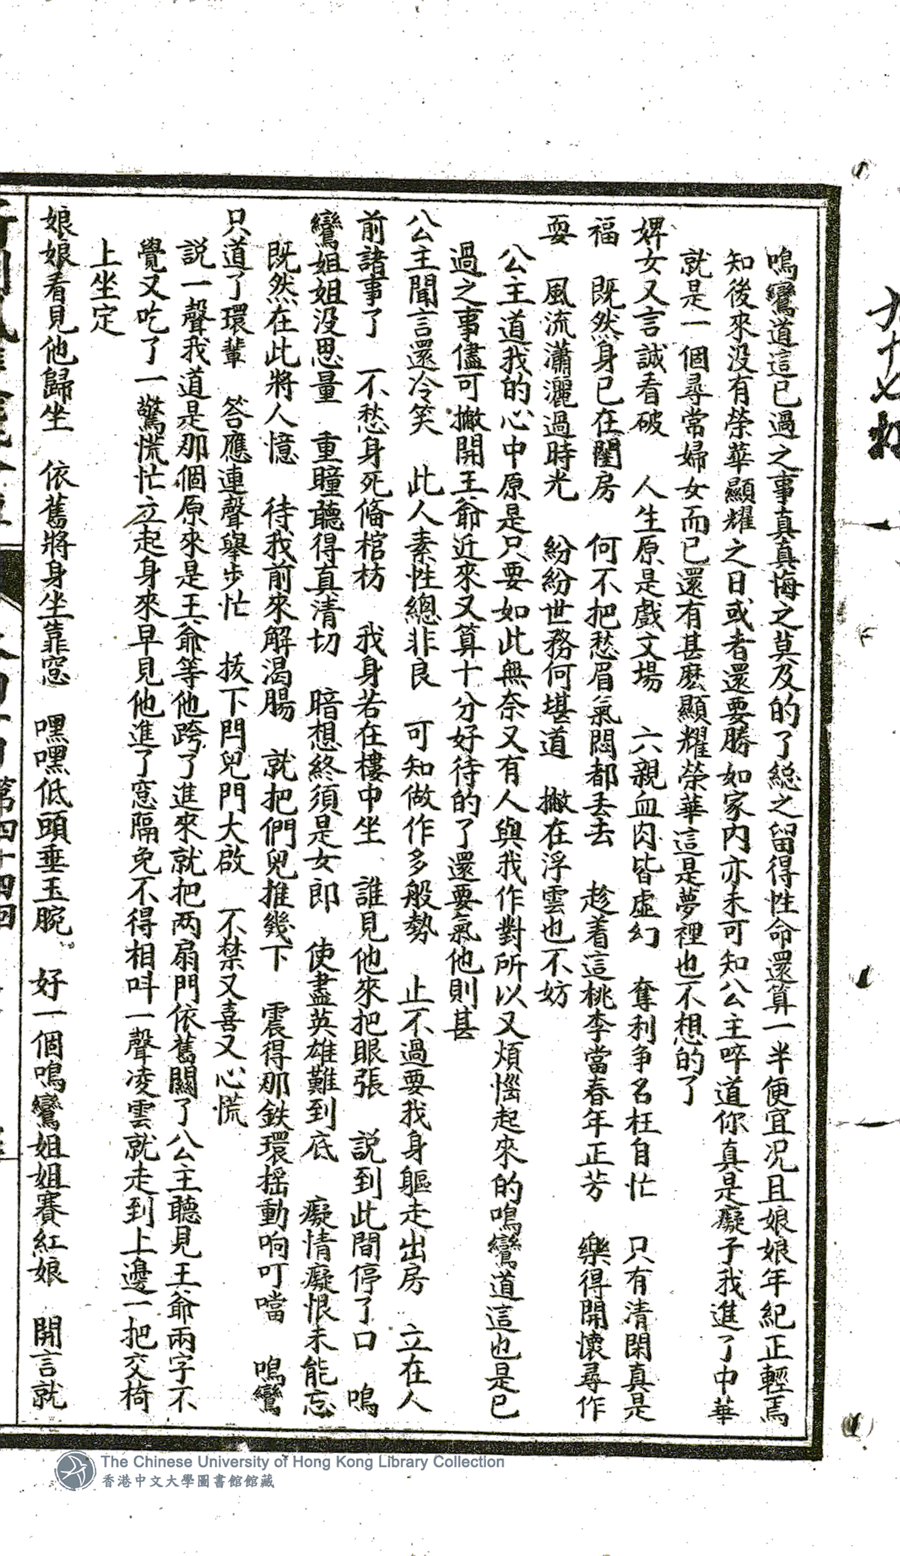 鳴鸞道這已過之事真真悔之莫及的了総之留得性命還算一半便宜况且娘娘年紀正輕焉
知後來没有榮華顯耀之日或者還要勝如家内亦未可知公主啐道你真是癡子我進了中華
就是一個尋常婦女而已還有甚麽顯耀榮華這是夢裡也不想的了
婢女又言誠看破　人生原是戲文場　六親血肉皆虛幻　奪利争名枉自忙　只有清閑真是
福　既然身已在閨房　何不把愁眉氣悶都丢去　趁着這桃李當春年正芳　樂得開懷尋作
耍　風流瀟灑過時光　紛紛世務何堪道　撇在浮雲也不妨
公主道我的心中原是只要如此無奈又有人與我作對所以又煩惱起來的鳴鸞道這也是已
過之事儘可撇開王爺近來又算十分好待的了還要氣他則甚
公主聞言還冷笑　此人素性總非良　可知做作多般勢　止不過要我身軀走出房　立在人
前諸事了　不愁身死俻棺枋　我身若在樓中坐　誰見他來把眼張　説到此間停了口　鳴
鸞姐姐没思量　重瞳聽得真清切　暗想終須是女郎　使盡英雄難到底　癡情癡恨未能忘
既然在此將人憶　待我前來解渴腸　就把們兒推幾下　震得那鉄環摇動响叮噹　鳴鸞
只道了環輩　答應連聲舉步忙　拔下門兒門大啟　不禁又喜又心慌
説一聲我道是那個原來是王爺等他跨了進來就把两扇門依舊關了公主聽見王爺兩字不
覺又吃了一驚慌忙立起身來早見他進了窓隔免不得相呌一聲凌雲就走到上邊一把交椅
上坐定
娘娘看見他歸坐　依舊將身坐靠窓　嘿嘿低頭垂玉腕　好一個鳴鸞姐姐賽紅娘　開言就
第四十四回
The Chinese University of Hong Kong Library Collection
香港中文大學圖書館館藏